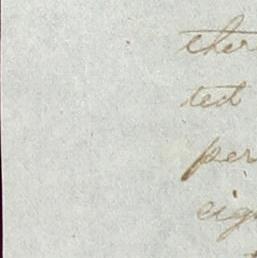 ther
ted
per
eig